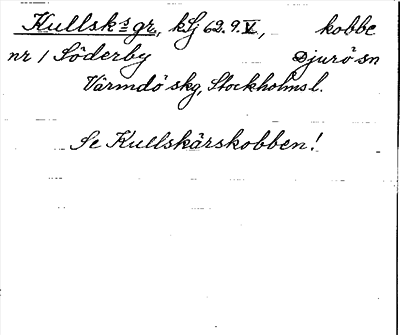 Kullsksgr, kSj 62.9.V, kobbe
nr 1 Söderby Djurö sn
Värmdö skg, Stockholms l.
Se Kullskärskobben!